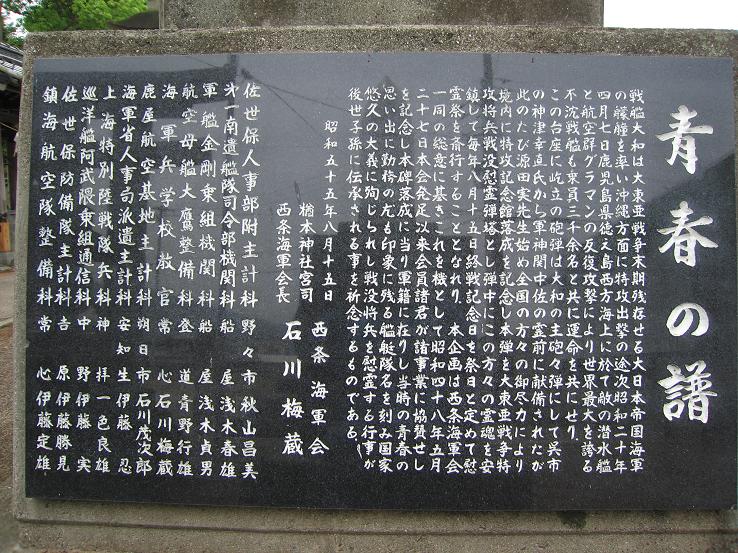 青春の譜
戦艦大和は大東亜戦争末期残存せる大日本帝国海軍
の艨艟を率い沖縄方面に特攻出撃の途次昭和二十年
四月七日鹿児島県徳之島西方海上に於て敵の潜水艦
と航空群グラマンの反復攻撃により世界最大を誇る
不沈戦艦も乗員三千余名と共に運命を共にせり。
この台座に屹立の砲弾は大和の主砲々弾にして呉市
の神津幸直氏から軍神関中佐の霊前に献備されたが
此のたび源田実先生始め全国の方々の御尽力により
境内に特攻記念館落成を記念し本弾を大東亜戦争特
攻将兵戦没慰霊弾塔とし弾中にこの方々の霊魂を安
鎮して毎年八月十五日終戦記念日を祭日と定めて慰
霊祭を斎行することとなれり。本企画は西条海軍会
一同の総意に基きこれを機として昭和四十八年五月
二十七日本会発足以来会員諸君が諸事業に協賛せし
を記念し本碑落成に当り軍籍に在りし当時の青春の
思い出に勤務の尤も印象に残る艦艇隊名を刻み国家
悠久の大義に殉じられし戦没将兵を慰霊する行事が
後世子孫に伝承される事を祈念するものである。
昭和五十五年八月十五日
楢本神社宮司 西条海軍会
西条海軍会長 石川梅蔵
佐世保人事部附主計科 野々市 秋山昌美
才一南遣艦隊司令部機関科 船屋 浅木春雄
軍艦金剛乗組機関科 船屋 浅木貞男
航空母艦大鷹整備科 登道 青野行雄
海軍兵学校教官 常心 石川梅蔵
鹿屋航空基地主計科 朔日市 石川茂次郎
海軍省人事局派遣主計科 安知生 伊藤忍
上海特別陸戦隊兵科 神拝 一色良雄
巡洋艦阿武隈乗組通信科 中野 伊藤実
佐世保防備隊主計科 吉原 伊藤勝見
鎮海航空隊整備科 常心 伊藤定雄